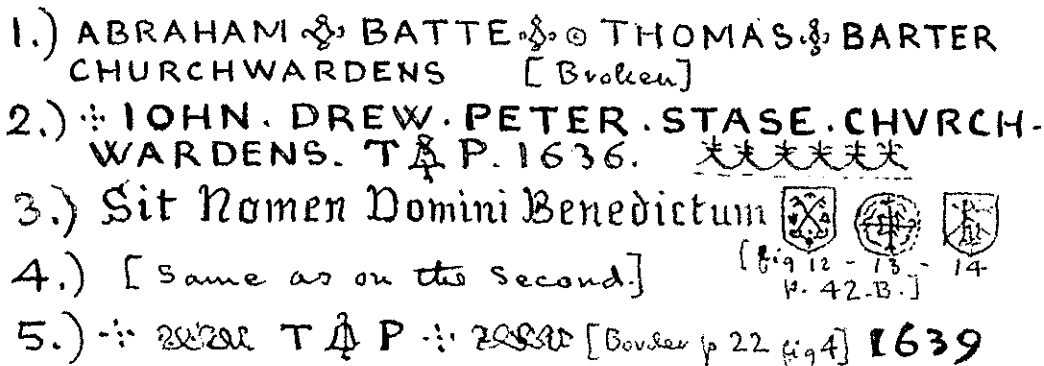 1.) ABRAHAM BATTE THOMAS BARTER
CHURCHWARDENS [Broken]
2.) IOHN. DREW. PETER. STASE. CHVRCH-
WARDENS. T P. 1636.
3.) Sit Nomen Domini Benedictum
[fig 12 - 13 - 14
p. 42.B.]
4.) [Same as on the second.]
5.) T P [Border p 22 fig 4] 1639